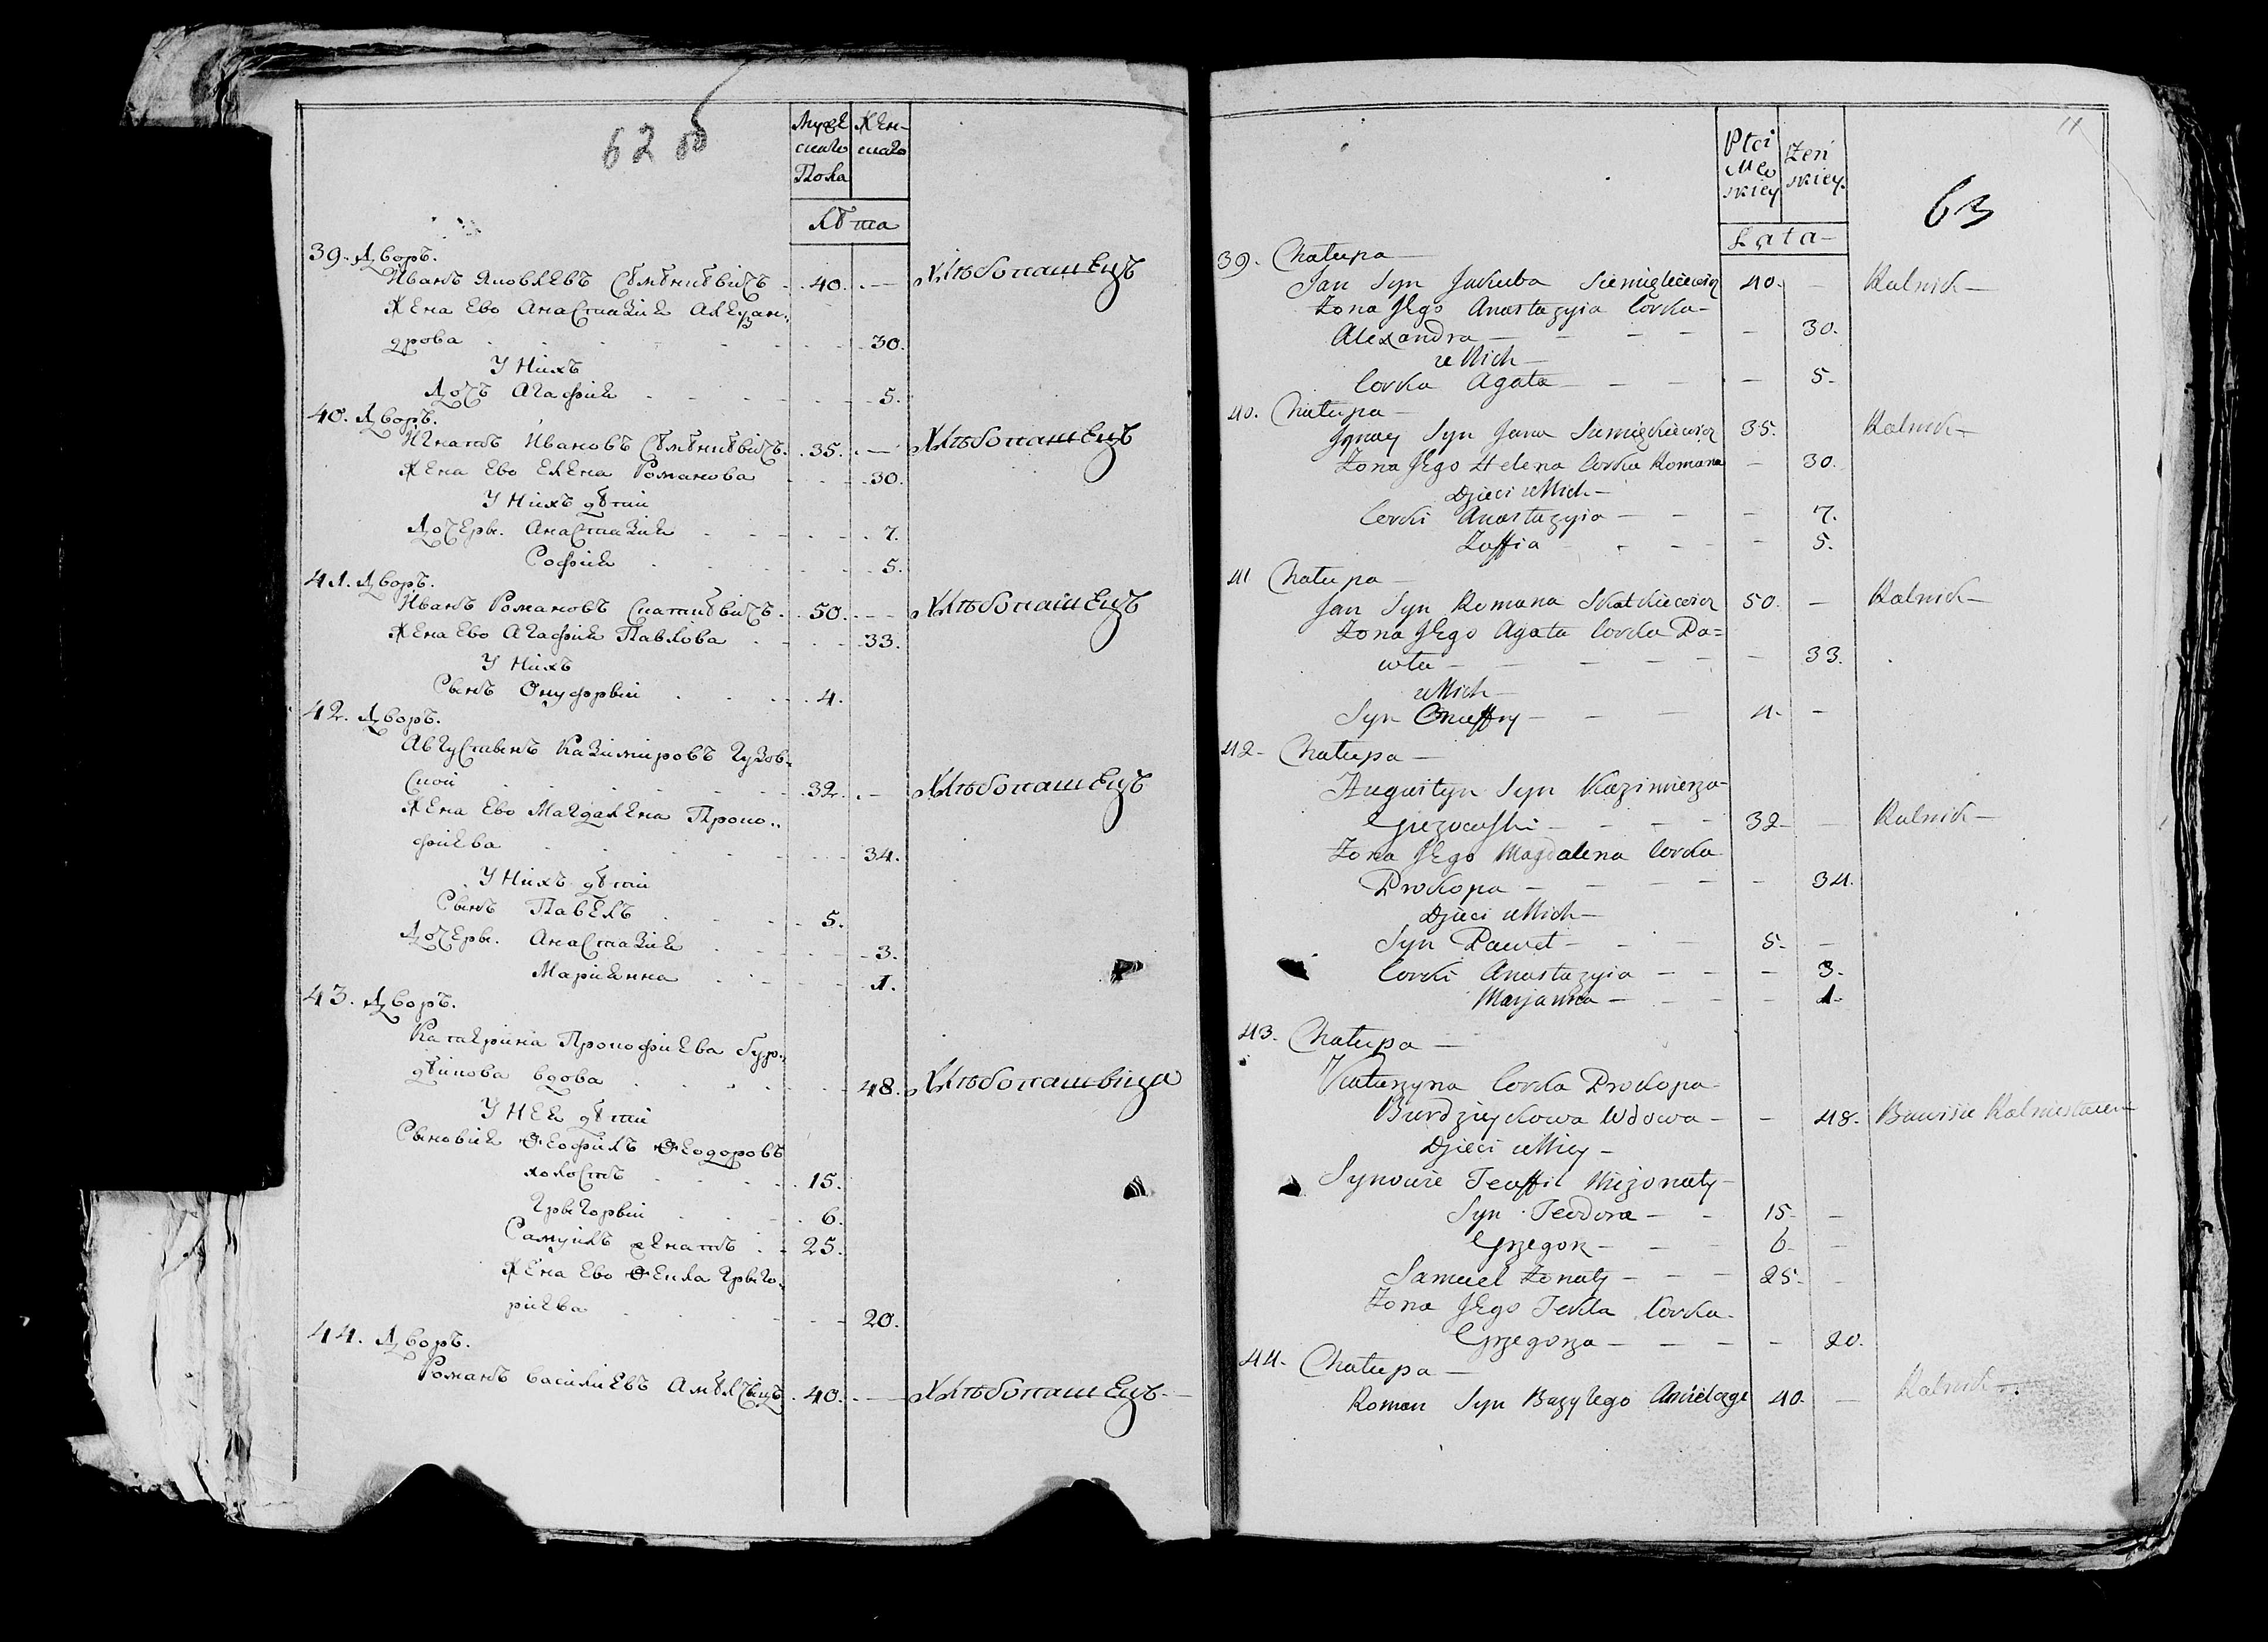 62 об
Мужескаго Пола
Женскаго
Лѣта
39. Дворъ.
Иванъ Яковлевъ - 40. - Хлѣбопашецъ
Жена Ево Анастазия Алексан-
дрова - 30.
У Нихъ
Дочь Агафия - 5.
40. Дворъ.
Игнатъ Ивановъ - 35. - Хлѣбопашецъ
Жена Ево Елена Романова - 30.
У Нихъ дѣти
Дочери Анастазия - 7.
София - 5.
41. Дворъ.
Иванъ Романовъ - 50. - Хлѣбопашецъ
Жена Ево Агафия Павлова - 33.
У Нихъ
Сынъ Онуфрвий - 4.
42. Дворъ.
Августынъ Казимировъ Гузов-
ской - 32. - Хлѣбопашецъ
Жена Ево Магдалена Проко-
фиева - 34.
У Нихъ дѣти
Сынъ Павелъ - 5.
Дочери Анастазия - 3.
Марианна - 1.
43. Дворъ.
Катерина Прокофиева Бур-
дѣйкова вдова - 48. Хлѣбопашвица
У Неи дѣти
Сыновия Феофилъ Феодоровъ
холостъ - 15.
Грыгорвий - 6.
Самуилъ женатъ - 25.
Жена Ево Фекла Грыго-
риева - 20.
44. Дворъ.
Романъ Василиевъ - 40. - Хлѣбопашецъ
63
Płci Męskiey
Żeńskiey
Lata
39. Chałupa
Jan Syn Jakuba Siemiczkiewicz 40. - Rolnik
Żona Jego Anastazyia Corka
Alexandra - 30.
u Nich
Corka Agata - 5.
40. Chałupa
Jgnacy Syn Jana Siemiczkiewicz 35. Rolnik
Żona Jego Helena Corka Romana - 30.
Dzieci u Nich
Corki Anastazyia - 7.
Zoffia - 5.
41 Chałupa
Jan Syn Romana Skatkiewicz 50. - Rolnik
Żona Jego Agata Corka Pa=
wła - 33.
u Nich
Syn Onuffry - 4. -
42. Chałupa
Augustyn Syn Kazimierza
Guzowski - 32 - Rolnik
Żona Jego Magdalena Corka
Prokopa - 34.
Dzieci u Nich
Syn Paweł - 5. -
Corki Anastazyia - 3.
Marjanna - 1.
43. Chałupa
Katarzyna Corka Prokopa
Burdzieykowa Wdowa - 48. Bawi sie Rolnictwem
Dzieci u Niey
Synowie Teoffil Nieżonaty
Syn Teodora - 15 -
Grzegorz - 6 -
Samuel Żonaty - 25 -
Żona Jego Tekla Corka
Grzegorza - 20.
44. Chałupa
Roman Syn Bazylego 40. - Rolnik